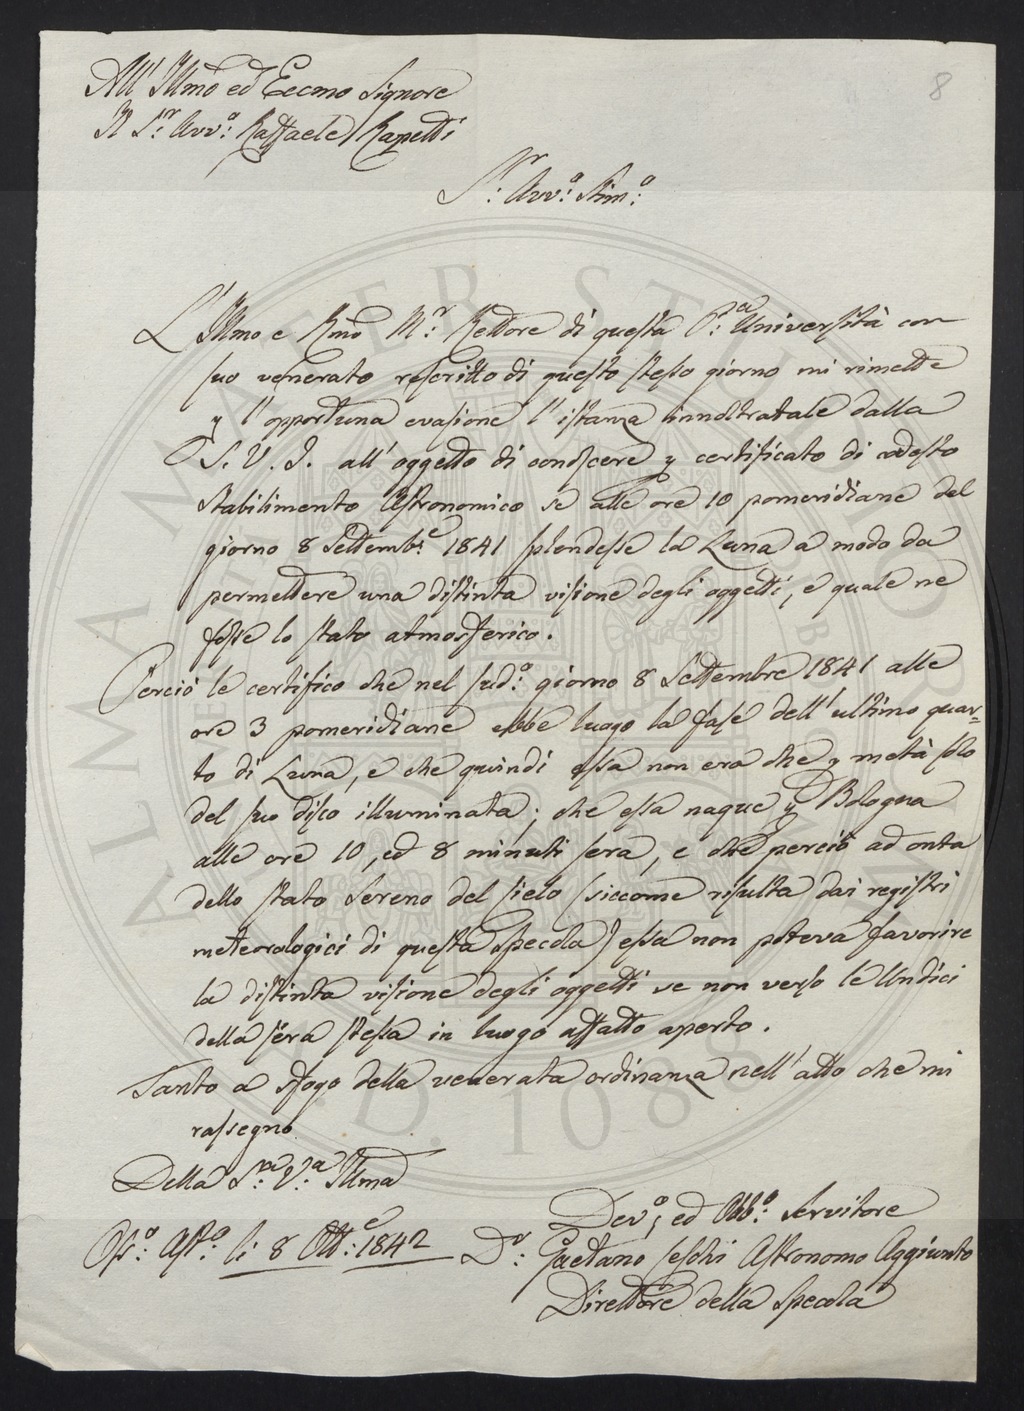 8
All' Illmo ed Eccmo Signore
Il S.r Avv.o Raffaele Rapetti
S.r Avv.o Stim.o
L'Illmo e Rmo M.r Rettore di questa P.a Università con
suo venerato rescritto di questo stesso giorno mi rimette
p l'opportuna evasione l'istanza innoltratale dalla
S. V. I. all'oggetto di conoscere p certificato di codesto
Stabilimento Astronomico se alle ore 10 pomeridiane del
giorno 8 Settemb.e 1841 splendesse la Luna a modo da
permettere una distinta visione degli oggetti, e quale ne
fosse lo stato atmosferico.
Perciò le certifico che nel sud.o giorno 8 Settembre 1841 alle
ore 3 pomeridiane ebbe luogo la fase dell'ultimo quar=
to di Luna, e che quindi essa non era che p metà solo
del suo disco illuminata; che essa naque p Bologna
alle ore 10, ed 8 minuti sera, e che perciò ad onta
dello stato sereno del sielo (siccome risulta dai registri
meteorologici di questa Specola) essa non poteva favorire
la distinta visione degli oggetti se non verso le Undici
della sera stessa in luogo affatto aperto.
Tanto a sfogo della venerata ordinanza nell'atto che mi
rassegno
Della S.a V.a Illma
Dev.o ed Obb.o Servitore
Oss.o Ast.o li 8 Ott.e 1842 D.r Gaetano Ceschi Astronomo Aggiunto
Direttore della Specola
ALMA MATER STUDIORUM
A.D. 1088